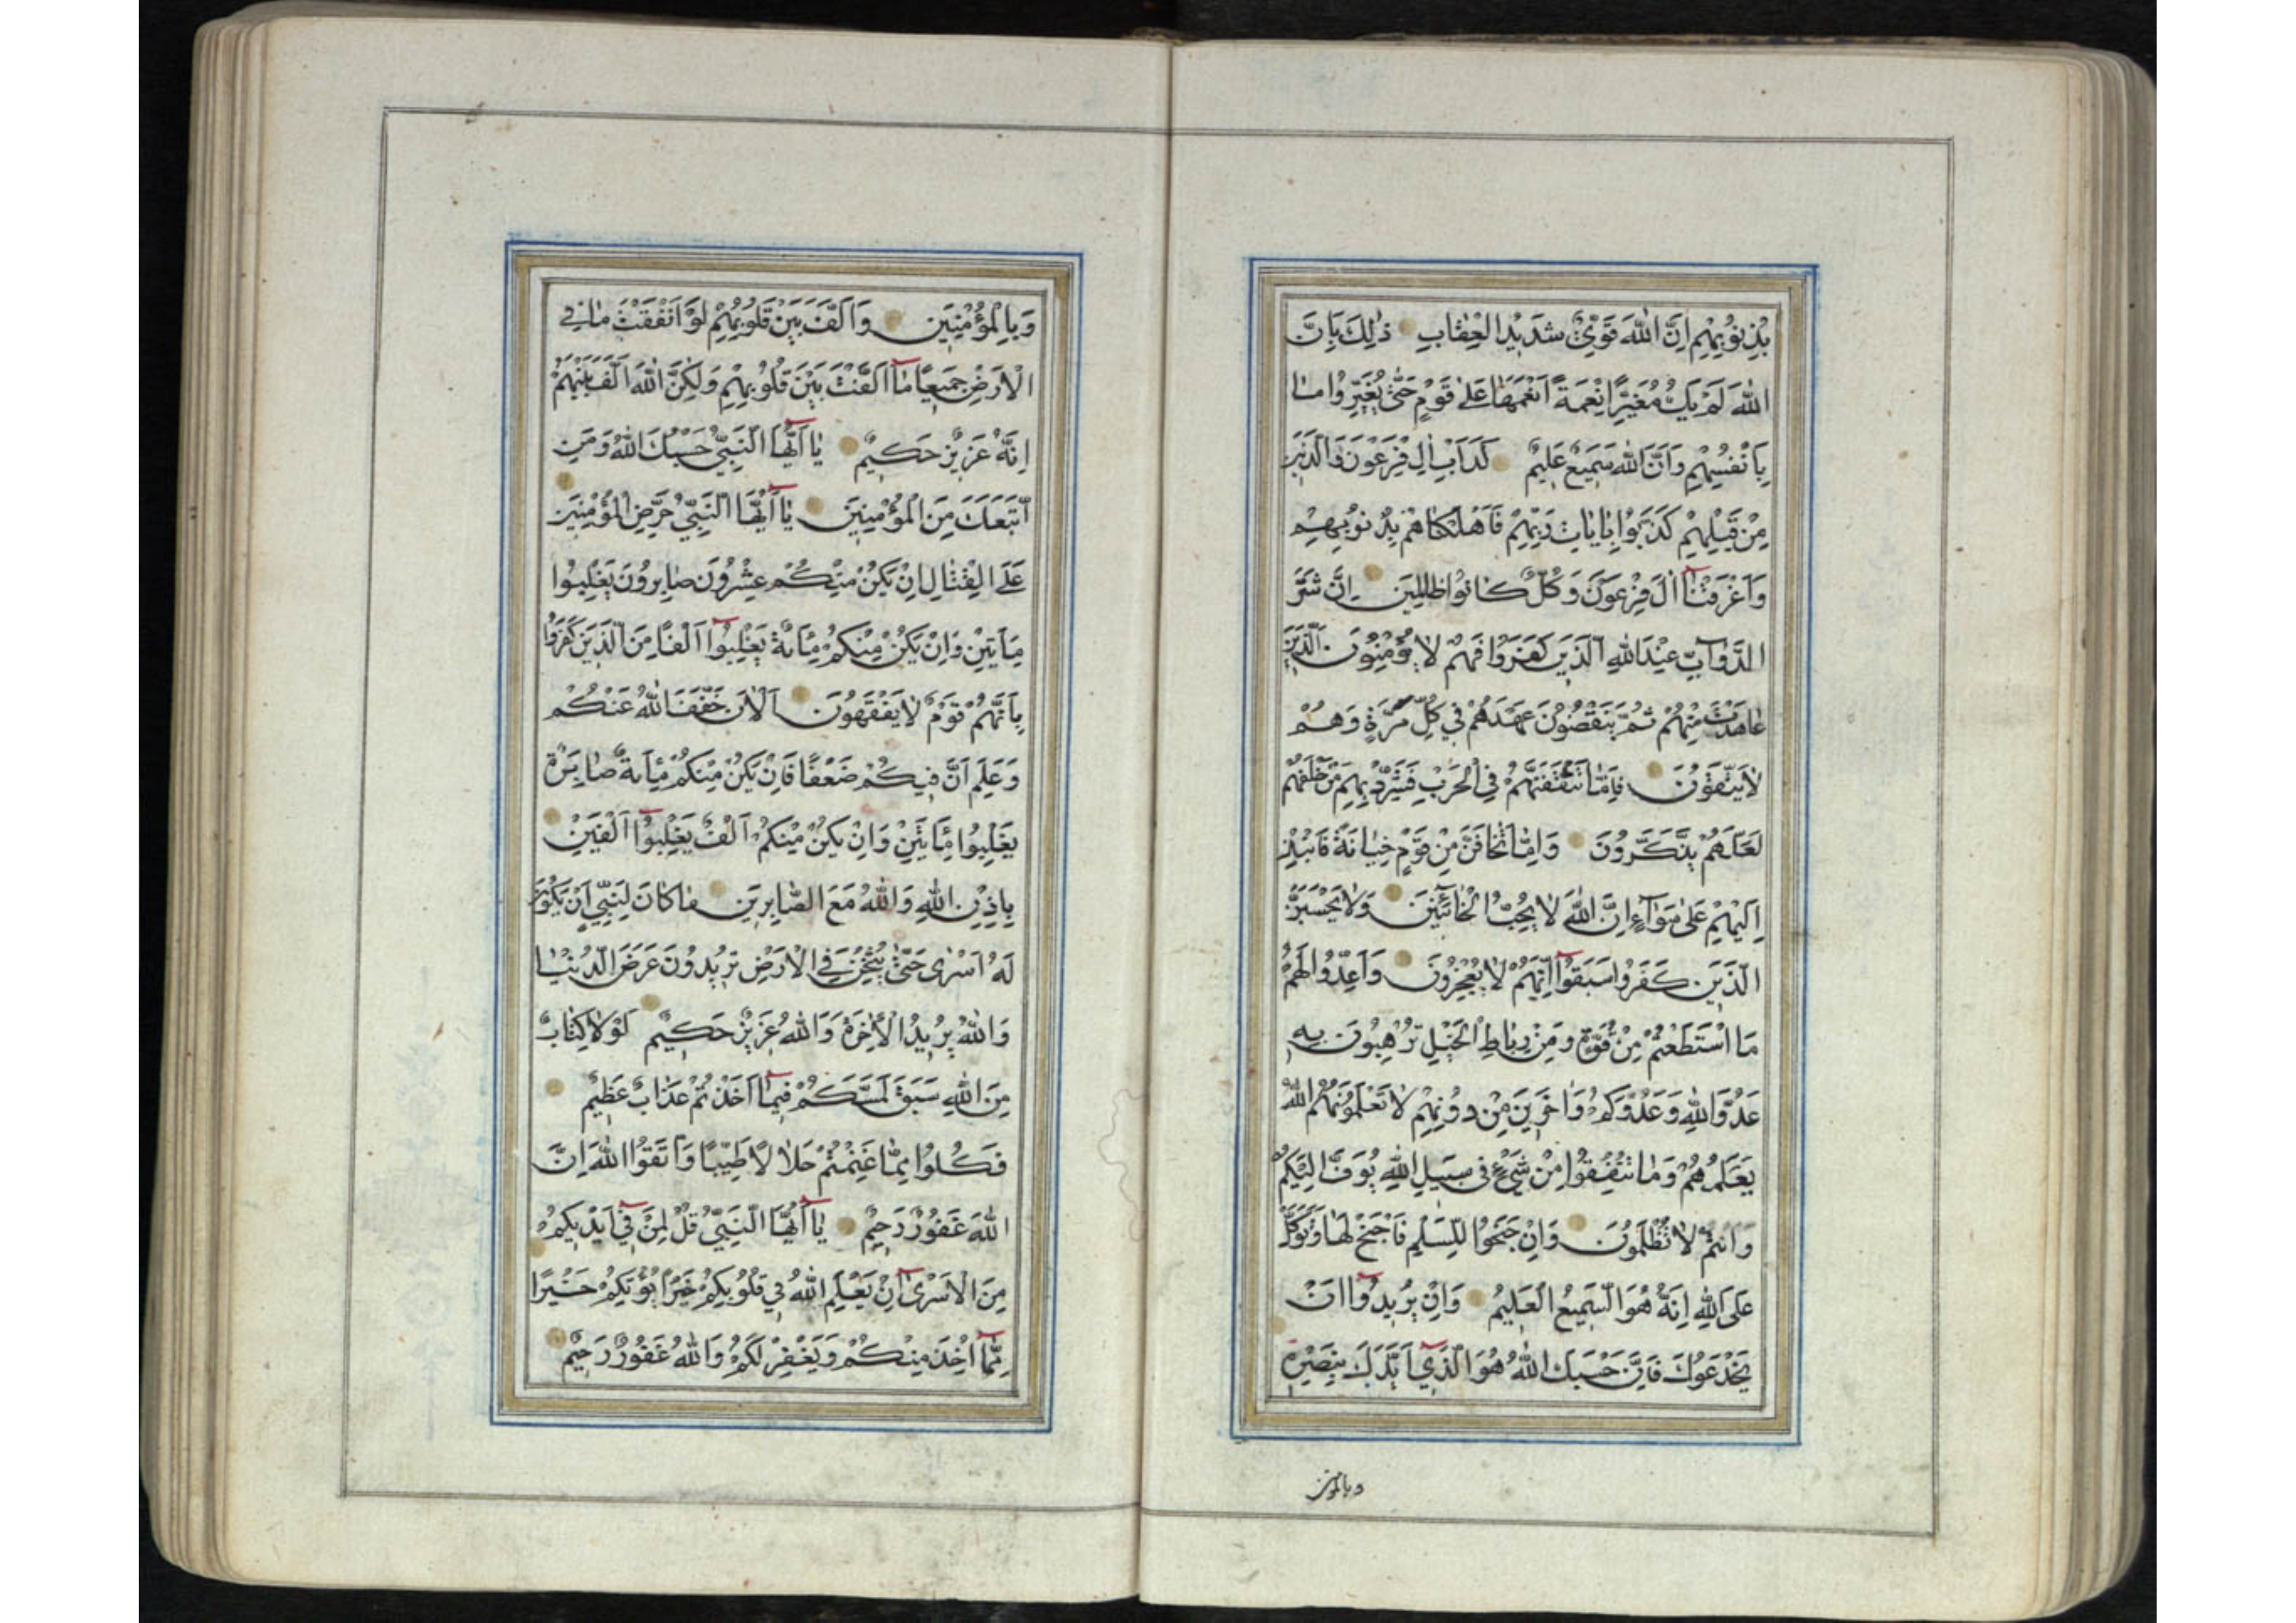 بِذُنُوبِهِمْ اِنَّ اللّٰهَ قَوِيٌّ شَدِيدُ الْعِقٰابِ ذٰلِكَ بِاَنَّ
اللّٰهَ لَمْ يَكُ مُغَيِّرًا نِعْمَةً اَنْعَمَهٰا عَلٰى قَوْمٍ حَتّٰى يُغَيِّرُوا مٰا
بِاَنْفُسِهِمْ وَاَنَّ اللّٰهَ سَمِيعٌ عَلِيمٌ كَدَاْبِ اٰلِ فِرْعَوْنَ وَالَّذِينَ
مِنْ قَبْلِهِمْ كَذَّبُوا بِاٰيٰاتِ رَبِّهِمْ فَاَهْلَكْنٰاهُمْ بِذُنُوبِهِمْ
وَاَغْرَقْنٰٓا اٰلَ فِرْعَوْنَ وَكُلٌّ كٰانُوا ظٰالِمِينَ اِنَّ شَرَّ
الدَّوَآبِّ عِنْدَ اللّٰهِ الَّذِينَ كَفَرُوا فَهُمْ لٰا يُؤْمِنُونَ الَّذِينَ
عٰاهَدْتَ مِنْهُمْ ثُمَّ يَنْقُضُونَ عَهْدَهُمْ فِي كُلِّ مَرَّةٍ وَهُمْ
لٰا يَتَّقُونَ فَاِمّٰا تَثْقَفَنَّهُمْ فِي الْحَرْبِ فَشَرِّدْ بِهِمْ مَنْ خَلْفَهُمْ
لَعَلَّهُمْ يَذَّكَّرُونَ وَاِمّٰا تَخٰافَنَّ مِنْ قَوْمٍ خِيٰانَةً فَانْبِذْ
اِلَيْهِمْ عَلٰى سَوٰآءٍ اِنَّ اللّٰهَ لٰا يُحِبُّ الْخٰآئِنِينَ وَلٰا يَحْسَبَنَّ
الَّذِينَ كَفَرُوا سَبَقُوٓا اِنَّهُمْ لٰا يُعْجِزُونَ وَاَعِدُّوا لَهُمْ
مَا اسْتَطَعْتُمْ مِنْ قُوَّةٍ وَمِنْ رِبٰاطِ الْخَيْلِ تُرْهِبُونَ بِهِ
عَدُوَّ اللّٰهِ وَعَدُوَّكُمْ وَاٰخَرِينَ مِنْ دُونِهِمْ لٰا تَعْلَمُونَهُمُ اللّٰهُ
يَعْلَمُهُمْ وَمٰا تُنْفِقُوا مِنْ شَيْءٍ فِي سَبِيلِ اللّٰهِ يُوَفَّ اِلَيْكُمْ
وَاَنْتُمْ لٰا تُظْلَمُونَ وَاِنْ جَنَحُوا لِلسَّلْمِ فَاجْنَحْ لَهٰا وَتَوَكَّلْ
عَلَى اللّٰهِ اِنَّهُ هُوَ السَّمِيعُ الْعَلِيمُ وَاِنْ يُرِيدُوٓا اَنْ
يَخْدَعُوكَ فَاِنَّ حَسْبَكَ اللّٰهُ هُوَ الَّذِيٓ اَيَّدَكَ بِنَصْرِهِ
وبالمؤمنين
وَبِالْمُؤْمِنِينَ وَاَلَّفَ بَيْنَ قُلُوبِهِمْ لَوْ اَنْفَقْتَ مٰا فِي
الْاَرْضِ جَمِيعًا مٰٓا اَلَّفْتَ بَيْنَ قُلُوبِهِمْ وَلٰكِنَّ اللّٰهَ اَلَّفَ بَيْنَهُمْ
اِنَّهُ عَزِيزٌ حَكِيمٌ يٰٓا اَيُّهَا النَّبِيُّ حَسْبُكَ اللّٰهُ وَمَنِ
اتَّبَعَكَ مِنَ الْمُؤْمِنِينَ يٰٓا اَيُّهَا النَّبِيُّ حَرِّضِ الْمُؤْمِنِينَ
عَلَى الْقِتٰالِ اِنْ يَكُنْ مِنْكُمْ عِشْرُونَ صٰابِرُونَ يَغْلِبُوا
مِاَتَيْنِ وَاِنْ يَكُنْ مِنْكُمْ مِائَةٌ يَغْلِبُوٓا اَلْفًا مِنَ الَّذِينَ كَفَرُوا
بِاَنَّهُمْ قَوْمٌ لٰا يَفْقَهُونَ اَلْاٰنَ خَفَّفَ اللّٰهُ عَنْكُمْ
وَعَلِمَ اَنَّ فِيكُمْ ضَعْفًا فَاِنْ يَكُنْ مِنْكُمْ مِائَةٌ صٰابِرَةٌ
يَغْلِبُوا مِائَتَيْنِ وَاِنْ يَكُنْ مِنْكُمْ اَلْفٌ يَغْلِبُوٓا اَلْفَيْنِ
بِاِذْنِ اللّٰهِ وَاللّٰهُ مَعَ الصّٰابِرِينَ مٰا كٰانَ لِنَبِيٍّ اَنْ يَكُونَ
لَهُ اَسْرٰى حَتّٰى يُثْخِنَ فِي الْاَرْضِ تُرِيدُونَ عَرَضَ الدُّنْيٰا
وَاللّٰهُ يُرِيدُ الْاٰخِرَةَ وَاللّٰهُ عَزِيزٌ حَكِيمٌ لَوْلٰا كِتٰابٌ
مِنَ اللّٰهِ سَبَقَ لَمَسَّكُمْ فِيمٰٓا اَخَذْتُمْ عَذٰابٌ عَظِيمٌ
فَكُلُوا مِمّٰا غَنِمْتُمْ حَلٰالًا طَيِّبًا وَاتَّقُوا اللّٰهَ اِنَّ
اللّٰهَ غَفُورٌ رَحِيمٌ يٰٓا اَيُّهَا النَّبِيُّ قُلْ لِمَنْ فِيٓ اَيْدِيكُمْ
مِنَ الْاَسْرٰٓى اِنْ يَعْلَمِ اللّٰهُ فِي قُلُوبِكُمْ خَيْرًا يُؤْتِكُمْ خَيْرًا
مِمّٰٓا اُخِذَ مِنْكُمْ وَيَغْفِرْ لَكُمْ وَاللّٰهُ غَفُورٌ رَحِيمٌ